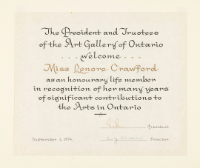 The President and Trustees
of the Art Gallery of Ontario
welcome
Miss Lenore Crawford
as an honourary life member
in recognition of her many years
of significant contributions to
the Arts in Ontario
President
Director